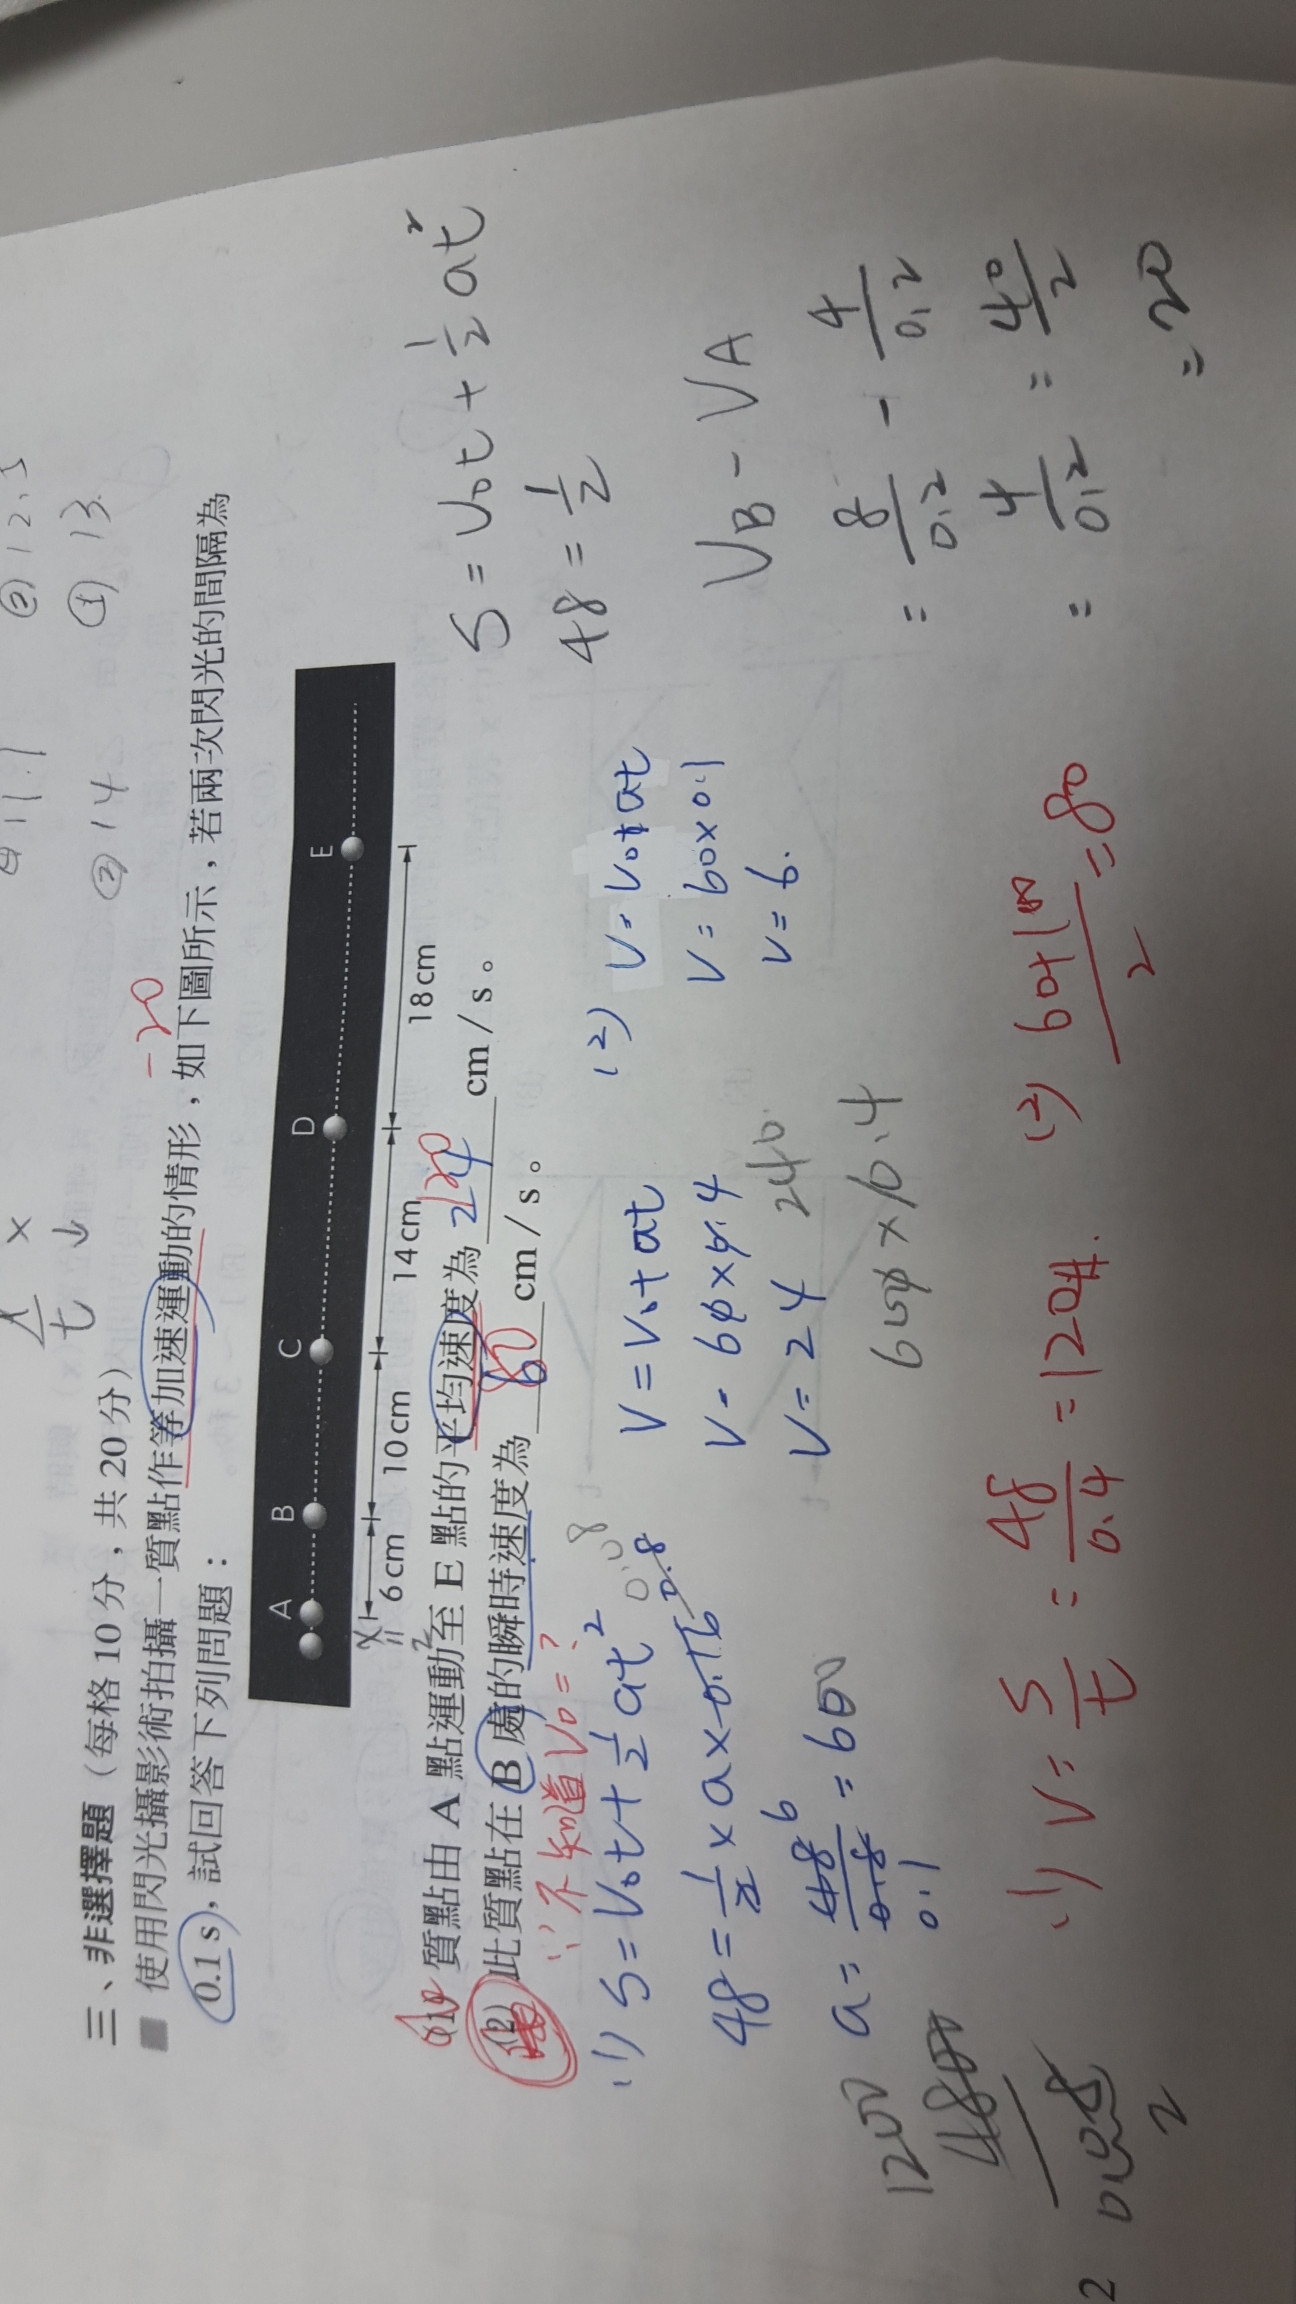 ② 12.3
① 13.
② 14
三、非選擇題（每格 10 分，共 20 分）
-20
■ 使用閃光攝影術拍攝一質點作等加速運動的情形，如下圖所示，若兩次閃光的間隔為
0.1 s，試回答下列問題：
A B C D E
6 cm 10 cm 14 cm 18 cm
質點由 A 點運動至 E 點的平均速度為 24 120 cm / s。
(2) 此質點在 B 處的瞬時速度為 6 80 cm / s。
∵不知道 V₀ = ?
(1) S = V₀t + ½at²
48 = ½ × a × 0.16
0.08
0.8
a = 48/0.8 = 600
6
0.1
V = V₀ + at
V = 60 × 0.4
V = 24
240
600 × 0.4
(2) V = V₀ + at
V = 60 × 0.1
V = 6.
S = V₀t + ½at²
48 = ½
VB - VA
= 8/0.2 - 4/0.2
= 4/0.2 = 40/2
= 20
(1) V = S/t = 48/0.4 = 120#.
(2) 60+100/2 = 80
1200
4800
2
2